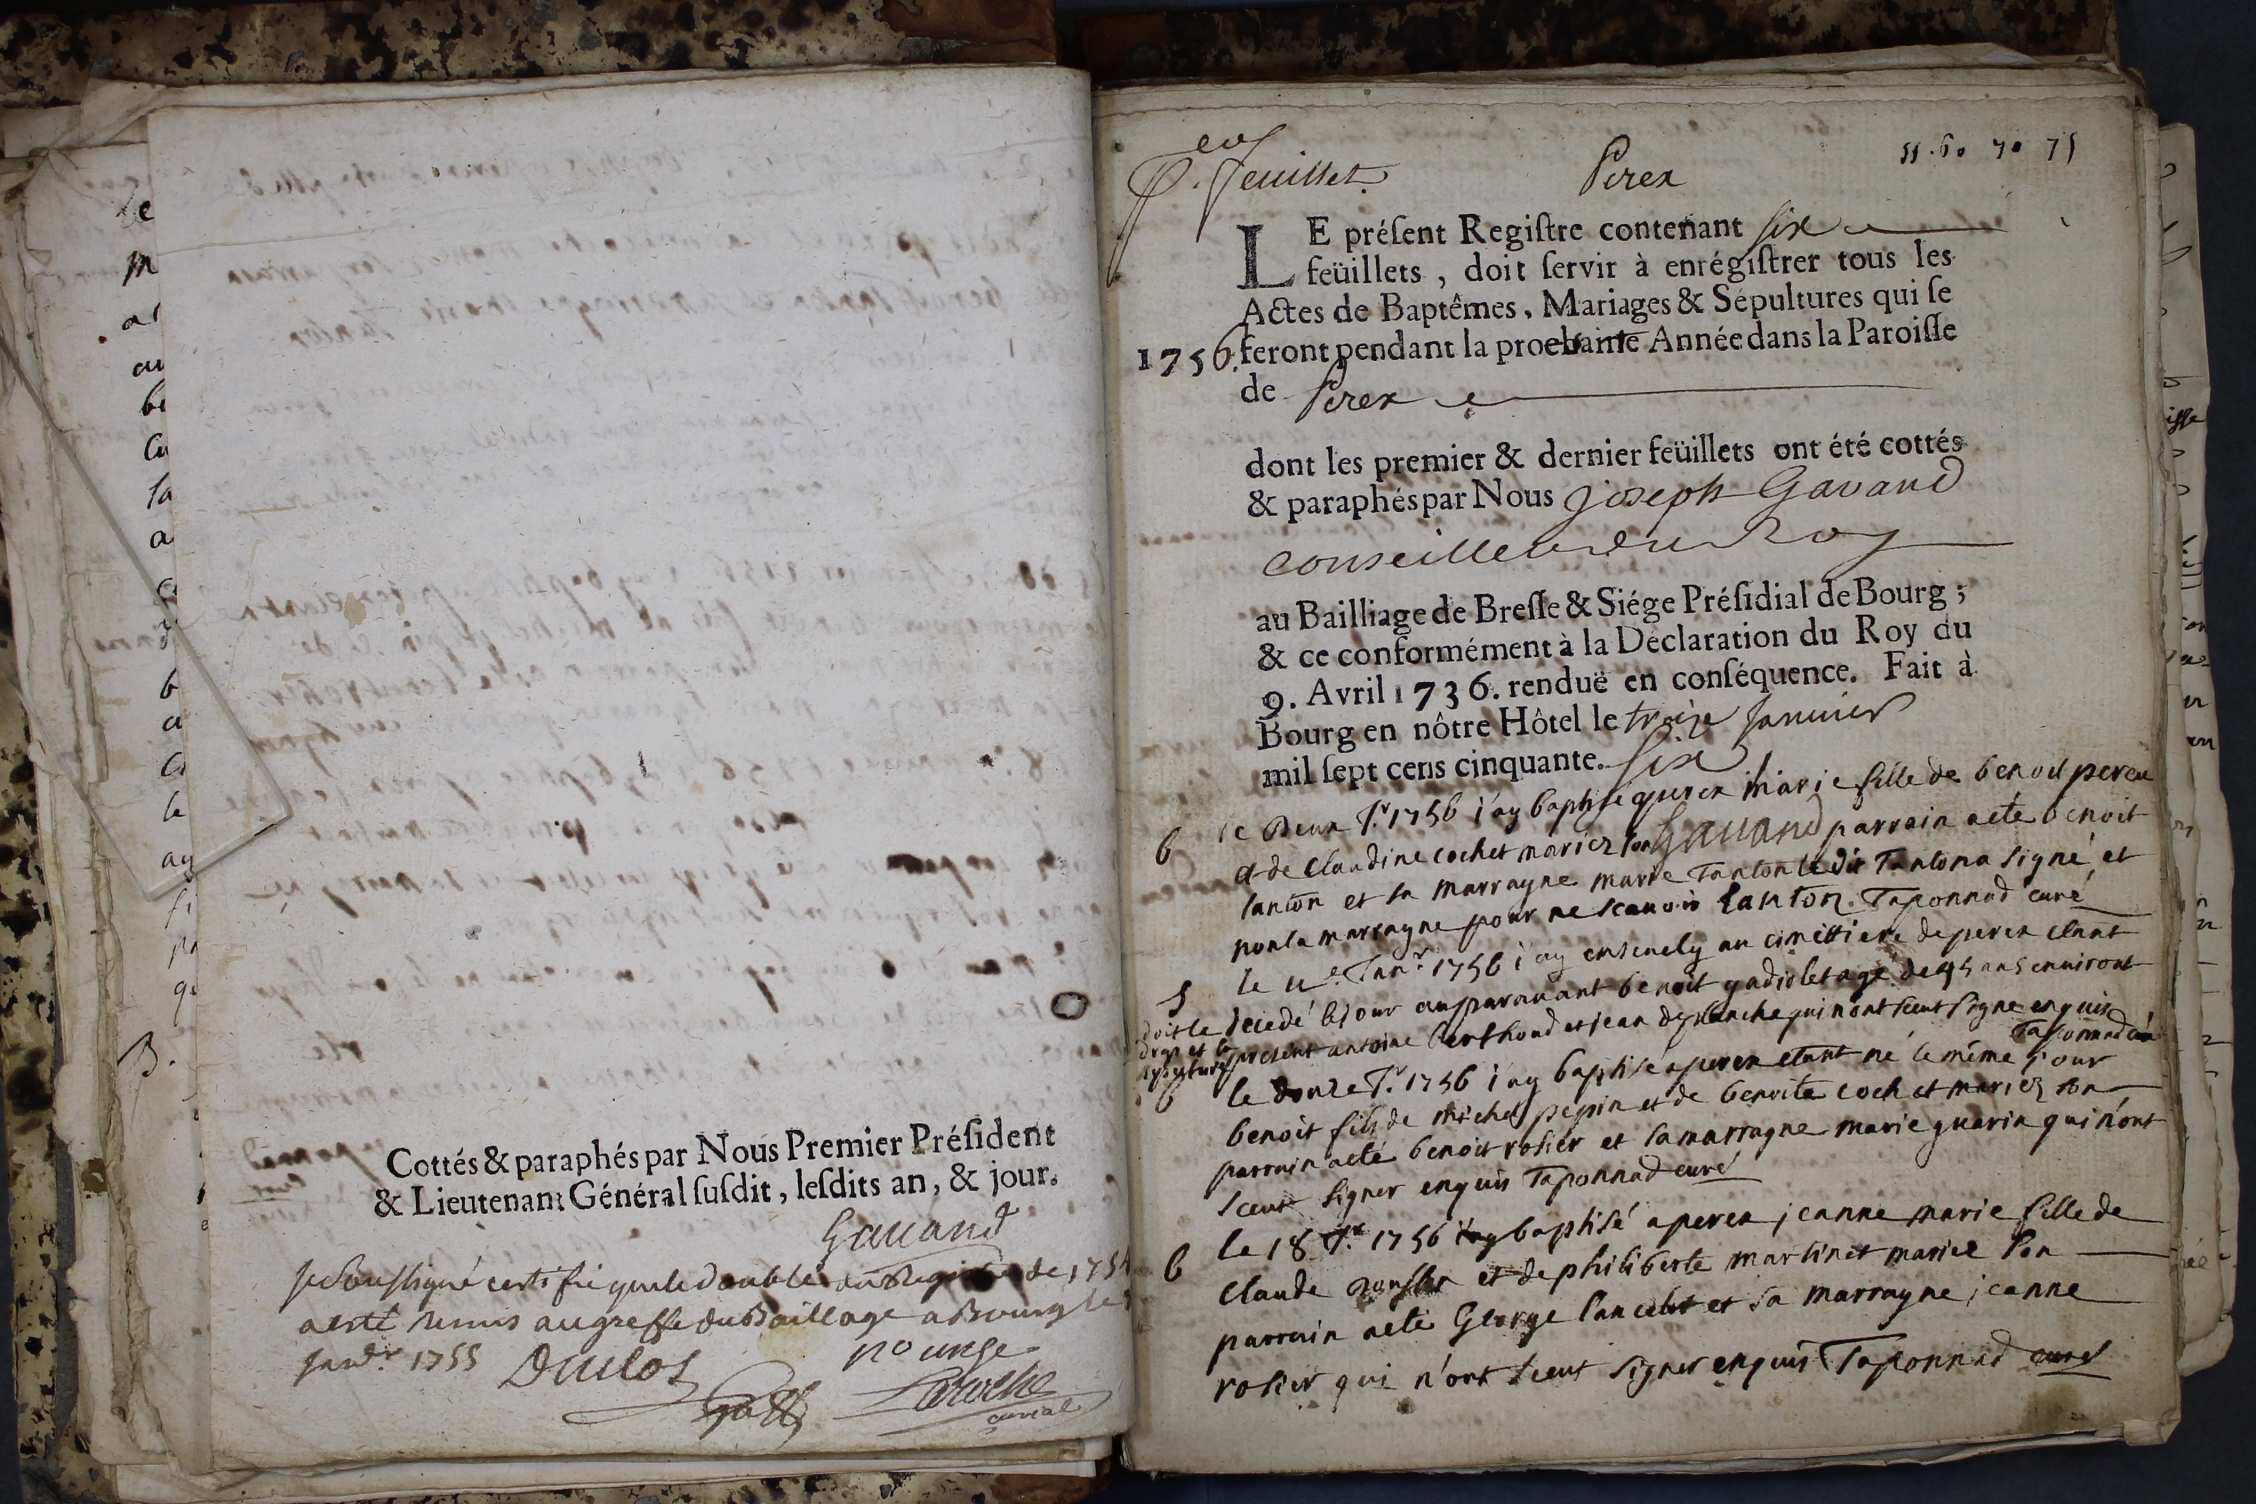 Cottés & paraphés par Nous Premier Préſident
& Lieutenant Général ſuſdit, leſdits an, & jour.
Gauand
Je Soussigné certifié que le double du Registre de 175
a esté remis au greffe du Baillage a Bourg le
Janvr 1755 Duclos
P.er feuillet
Perex
55. 60 70 75
LE préſent Regiſtre contenant six
feüillets, doit ſervir à enrégiſtrer tous les
Actes de Baptêmes, Mariages & Sépultures qui ſe
1756. feront pendant la prochaine Année dans la Paroiſſe
de Perex
dont les premier & dernier feüillets ont été cottés
& paraphés par Nous Joseph Gavand
conseiller du Roy
au Bailliage de Breſſe & Siége Préſidial de Bourg;
& ce conformément à la Déclaration du Roy du
9. Avril 1736. renduë en conſéquence. Fait à
Bourg en nôtre Hôtel le treize Janvier
mil ſept cens cinquante. six
Gauand
b le Deux Jr. 1756 i'ay baptisé a perex marie fille de benoit
et de Claudine cochet mariez son parrain a eté benoit
tanton et sa marrayne marie Tanton le dit Tanton a signé et
non la marrayne pour ne scauoir Tanton. Taponnad curé
S le 11e. Janr. 1756 i'ay enseuely au cimittiere de perex etant
decedé le jour auparauant benoit gadiolet agé de 45 ans enuiront
present antoine berthoud et jean deplanche qui n'ont sceut signe enquis
Taponnad curé
doit le
drap et la
sepulture
b le douze Jr. 1756 i'ay baptisé a perex etant né le même jour
benoit fils de michel pepin et de benoite cochet mariez son
parrain a eté benoit rosier et sa marrayne marie guerin qui n'ont
sceut signer enquis Taponnad curé
b le 18 Jr. 1756 i'ay baptisé a perex jeanne marie fille de
Claude et de philiberte martinet mariez son
parrain a eté George Lancelot et sa marrayne jeanne
rosier qui n'ont sceut signer enquis Taponnad curé